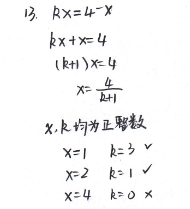 13. kx=4-x
kx+x=4
(k+1)x=4
x=4/(k+1)
x,k均为正整数
x=1 k=3 ✓
x=2 k=1 ✓
x=4 k=0 ×